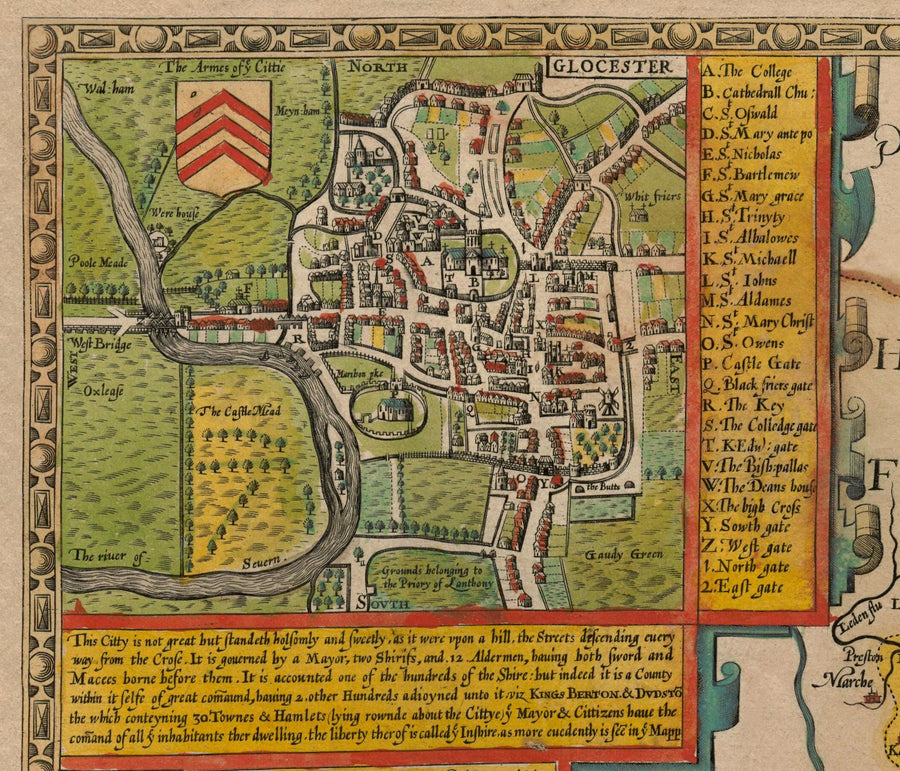 The Armes of yͤ Cittie
NORTH
GLOCESTER
Wal: ham
Meyn: ham
Were house
Whit friers
Poole Meade
West Bridge
WEST
Oxlease
Maribon pke
EAST
The Castle Mead
the Butts
The riuer of
Seuern.
Gaudy Green
Grounds belonging to
the Priory of Lanthony
SOVTH
A. The College
B. Cathedrall Chu:
C. Sᵗ Oswald
D. Sᵗ Mary ante po
E. Sᵗ Nicholas
F. Sᵗ Bartlemew
G. Sᵗ Mary grace
H. Sᵗ Trinyty
I. Sᵗ Alhalowes
K. Sᵗ Michaell
L. Sᵗ Iohns
M. Sᵗ Aldames
N. Sᵗ Mary Christ
O. Sᵗ Owens
P. Castle Gate
Q. Black friers gate
R. The Key
S. The Colledge gate
T. K Edw: gate
V. The Bish: pallas
W. The Deans house
X. The high Cross
Y. Sowth gate
Z. West gate
1. North gate
2. East gate
This Citty is not great but standeth holsomly and sweetly, as it were vpon a hill, the Streets descending euery
way from the Crose. It is gouerned by a Mayor, two Shirifs, and .12 Aldermen, hauing both sword and
Macees borne before them. It is accounted one of the hundreds of the Shire: but indeed it is a County
within it selfe of great com̄aund, hauing 2. other Hundreds adioyned unto it viz KINGS BERTON. & DVDSTŌ
the which conteyning 30. Townes & Hamlets (lying rownde about the Cittye) yͤ Mayor & Cittizens haue the
com̄and of all yͤ inhabitants ther dwelling. the liberty therof is called yͤ Inshire. as more euedently is seē in yͤ Mapp
Leden flu
Preston
Marche